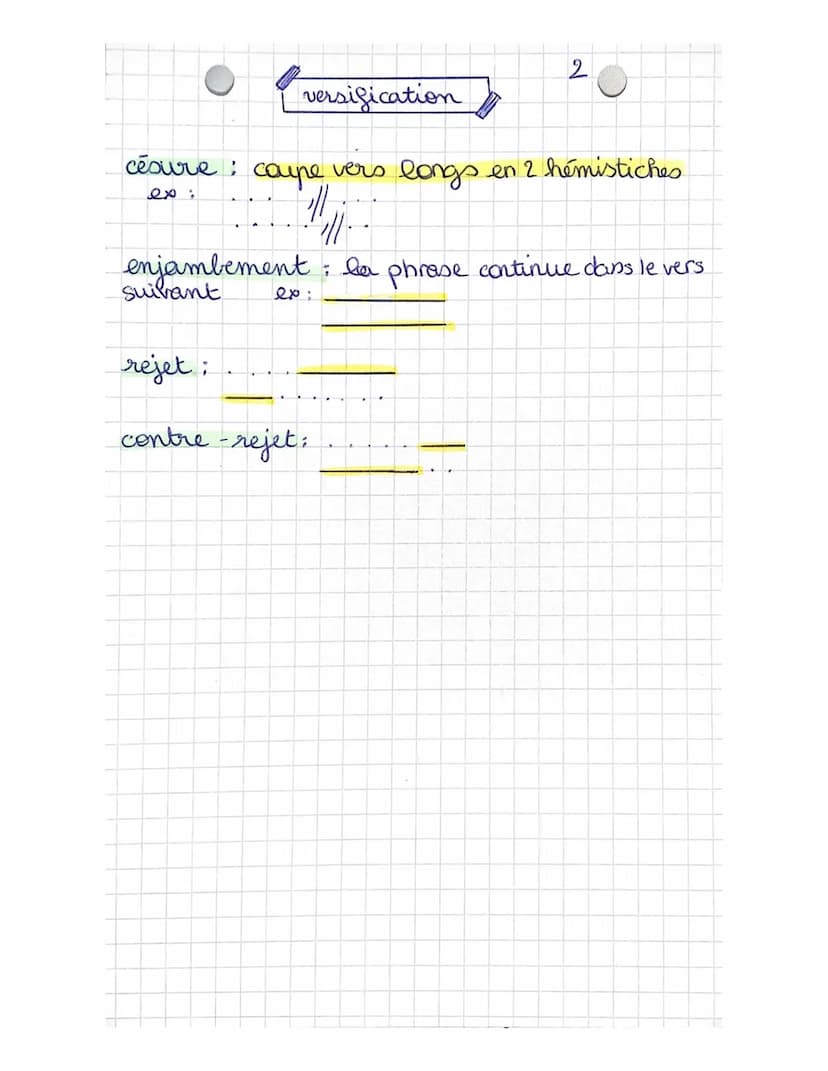 2
versification
césure : coupe vers longs en 2 hémistiches
ex : . . . // . . .
. . . . . // . .
enjambement : la phrase continue dans le vers
suivant ex :
rejet : . . . .
. . . . . . .
contre-rejet : . . . . .
. .